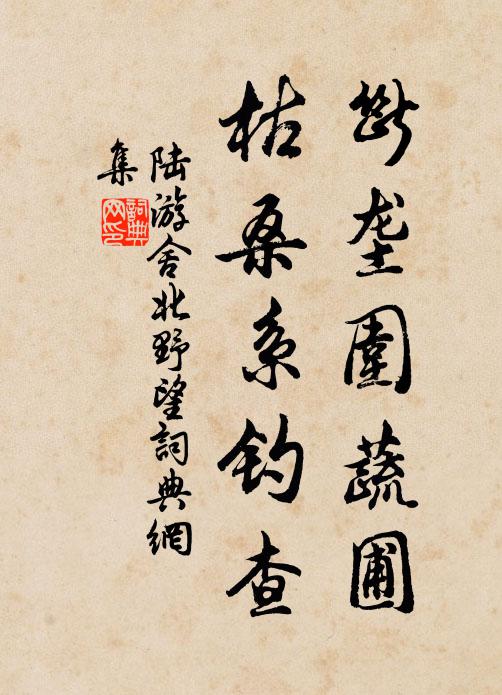 断垄围蔬圃
枯桑系钓查
陆游舍北野望词典网
集
詞典
网印